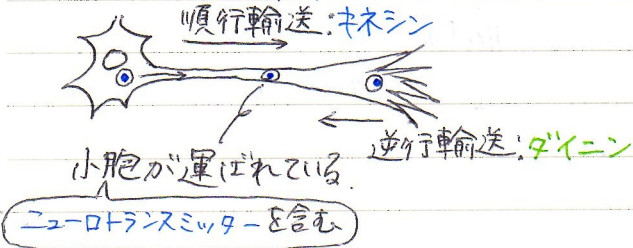 順行輸送:キネシン
逆行輸送:ダイニン
小胞が運ばれている.
ニューロトランスミッターを含む